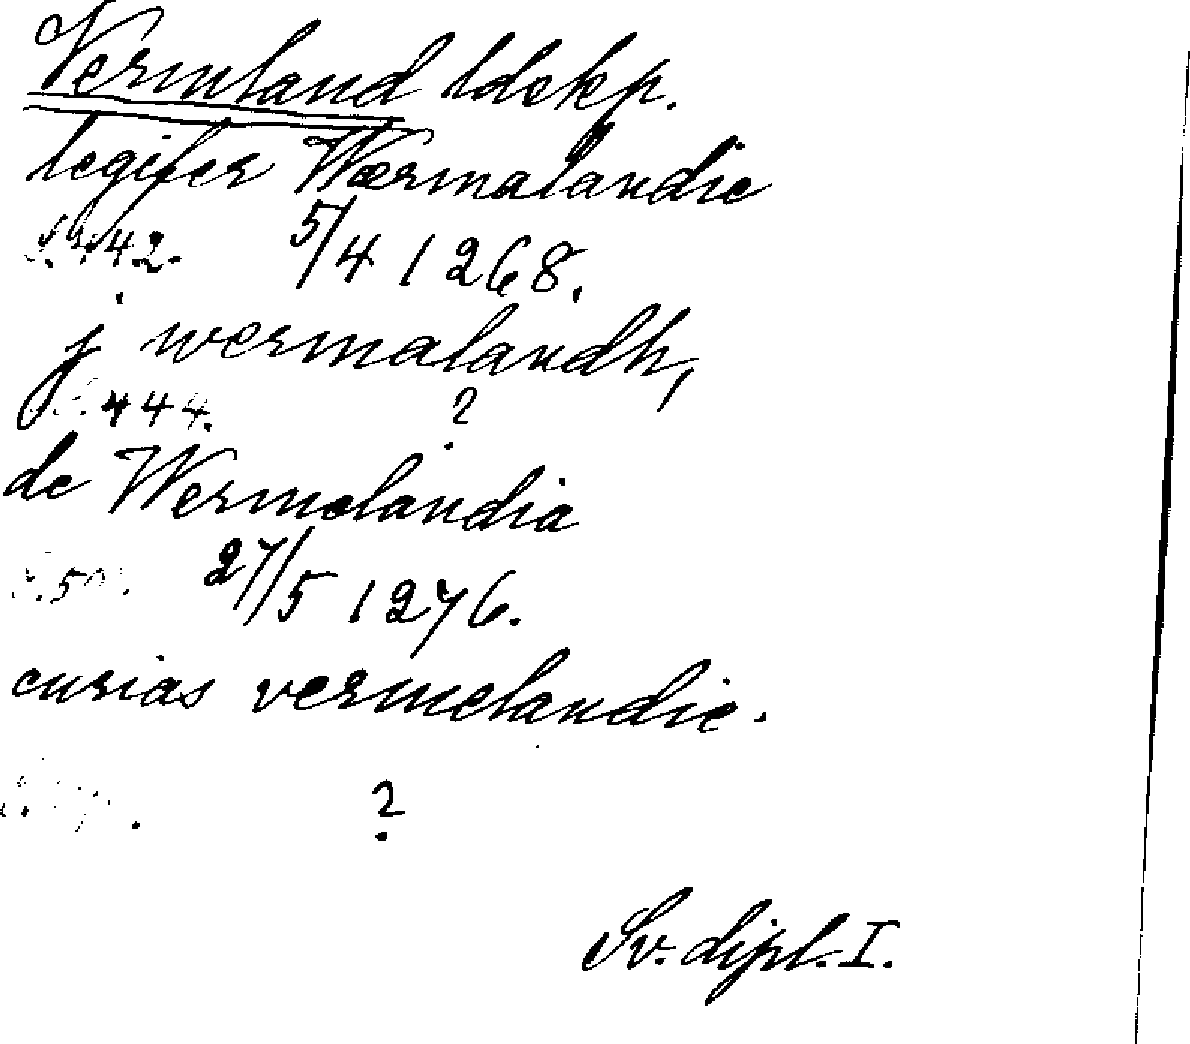 Vermland ldskp.
legifer Wærmalandie
S. 442. 5/4 1268.
j wermalandh,
S. 444. ?
de Wermelandia
27/5 1276.
curias vermelandie.
?
Sv. dipl. I.